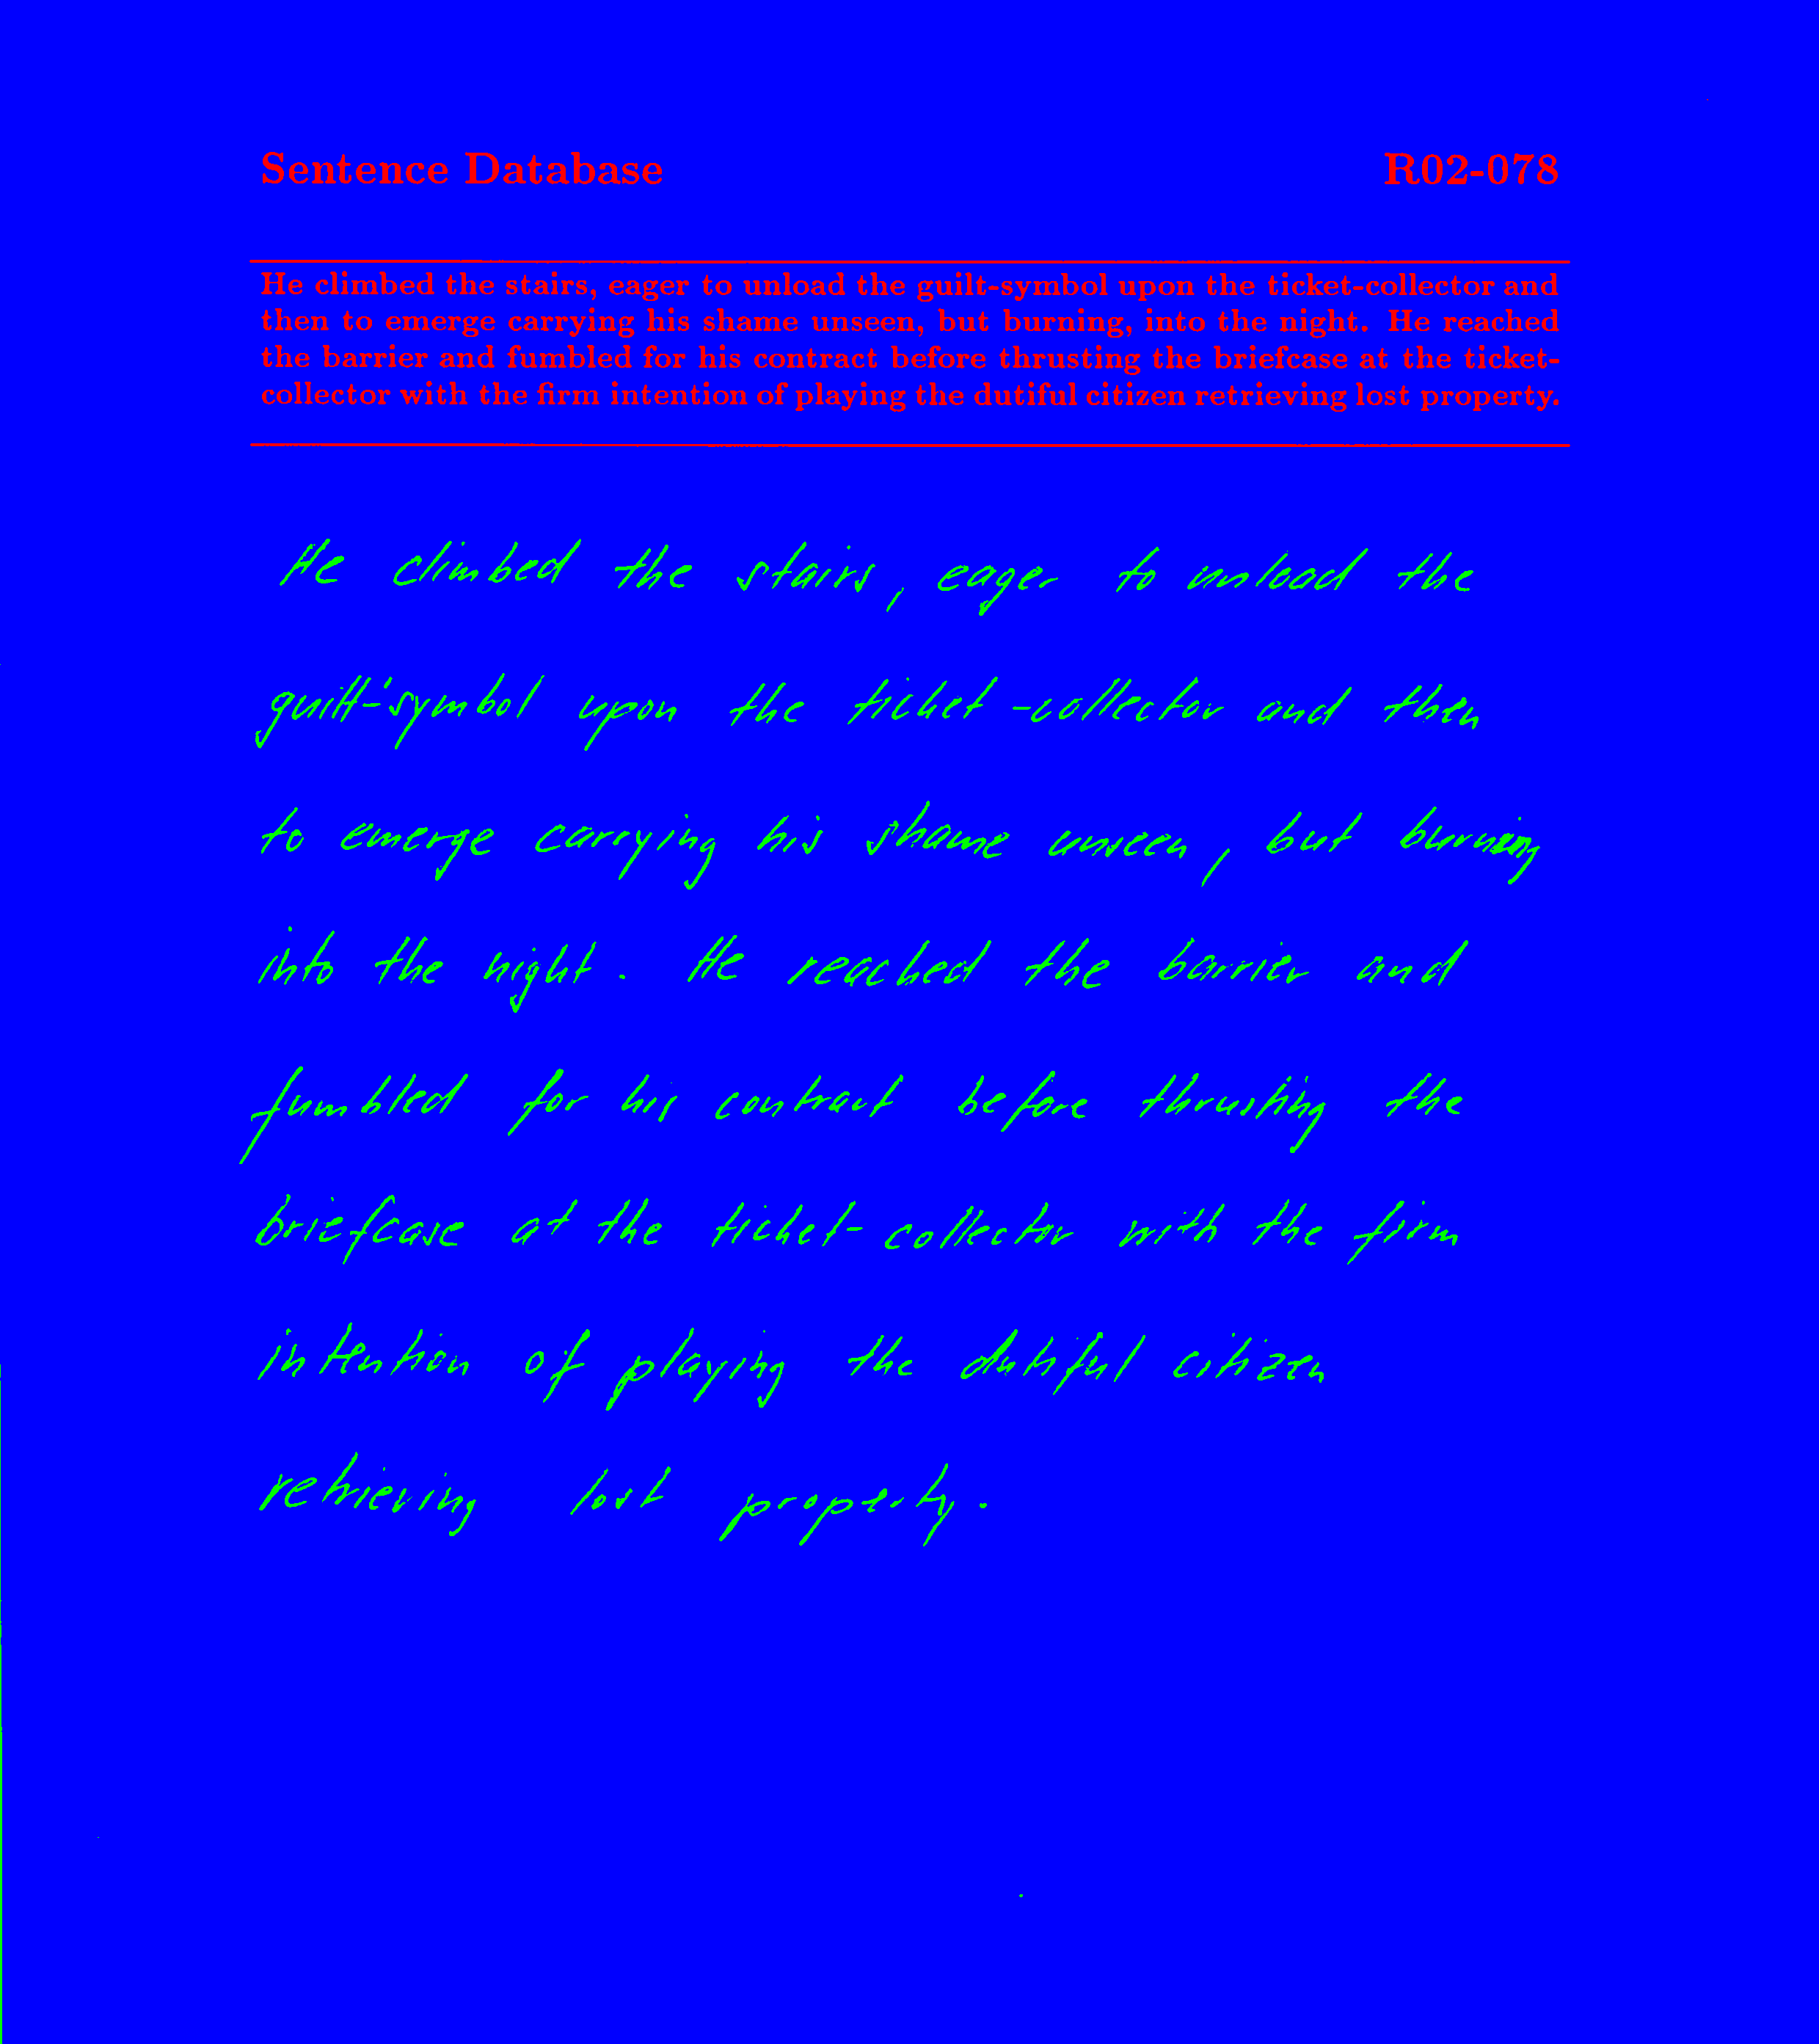 Sentence Database R02-078
He climbed the stairs, eager to unload the guilt-symbol upon the ticket-collector and
then to emerge carrying his shame unseen, but burning, into the night. He reached
the barrier and fumbled for his contract before thrusting the briefcase at the ticket-
collector with the firm intention of playing the dutiful citizen retrieving lost property.
He climbed the stairs, eager to unload the
guilt-symbol upon the ticket-collector and then
to emerge carrying his shame unseen, but burning
into the night. He reached the barrier and
fumbled for his contract before thrusting the
briefcase at the ticket-collector with the firm
intention of playing the dutiful citizen
retrieving lost property.